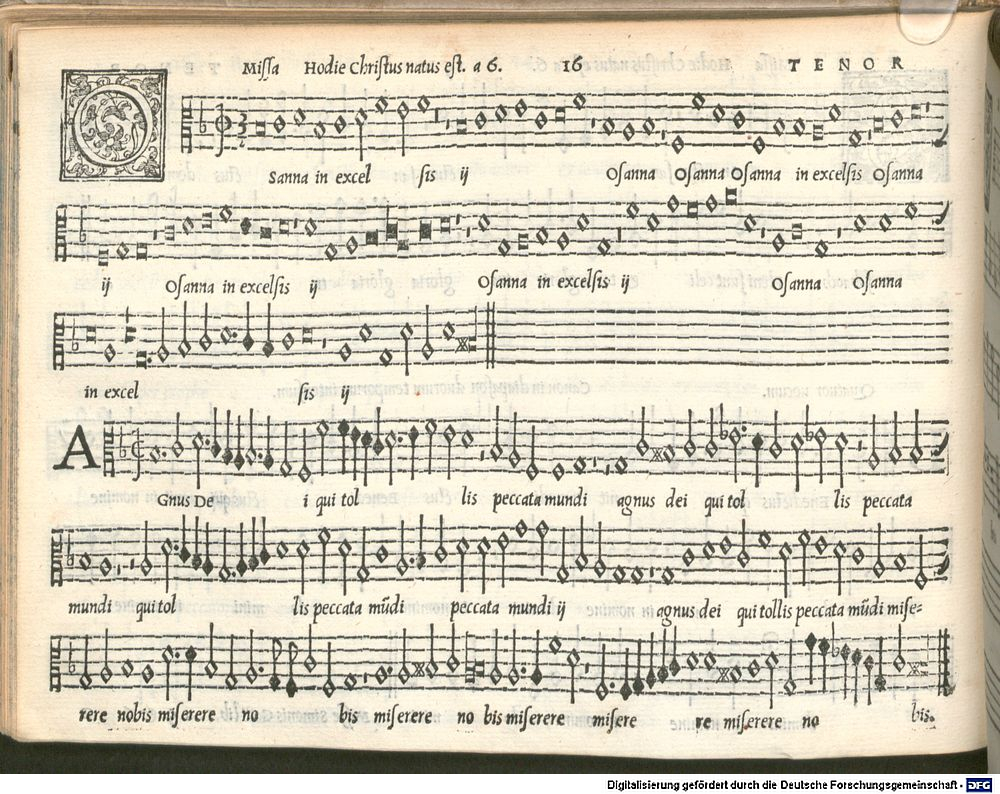 Missa Hodie Christus natus est. a 6. 16 TENOR
O
Sanna in excel sis ij Osanna Osanna Osanna in excelsis Osanna
ij Osanna in excelsis ij Osanna in excelsis ij Osanna Osanna
in excel sis ij
A
Gnus De i qui tol lis peccata mundi agnus dei qui tol lis peccata
mundi qui tol lis peccata mũdi peccata mundi ij agnus dei qui tollis peccata mũdi mise=
rere nobis miserere no bis miserere no bis miserere misere re miserere no bis.
Digitalisierung gefördert durch die Deutsche Forschungsgemeinschaft - DFG